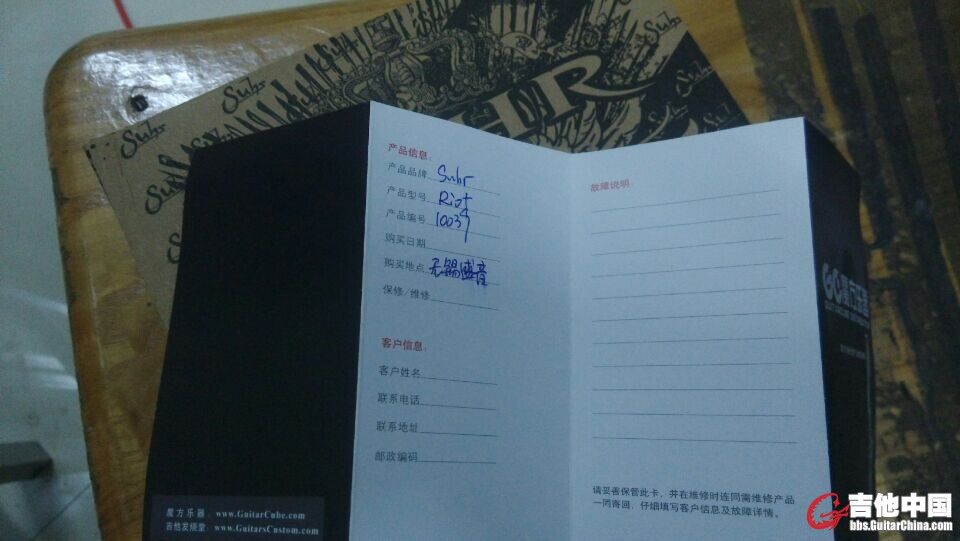 Suhr
Suhr
Suhr
Suhr
HR
产品信息：
产品品牌 Suhr
产品型号 Riot
产品编号 10039
购买日期
购买地点 无锡盛音
保修/维修
客户信息：
客户姓名
联系电话
联系地址
邮政编码
故障说明：
请妥善保管此卡，并在维修时连同需维修产品
一同寄回，仔细填写客户信息及故障详情。
魔方乐器：www.GuitarCube.com
吉他发烧堂：www.GuitarsCustom.com
魔方乐器
吉他中国
bbs.GuitarChina.com